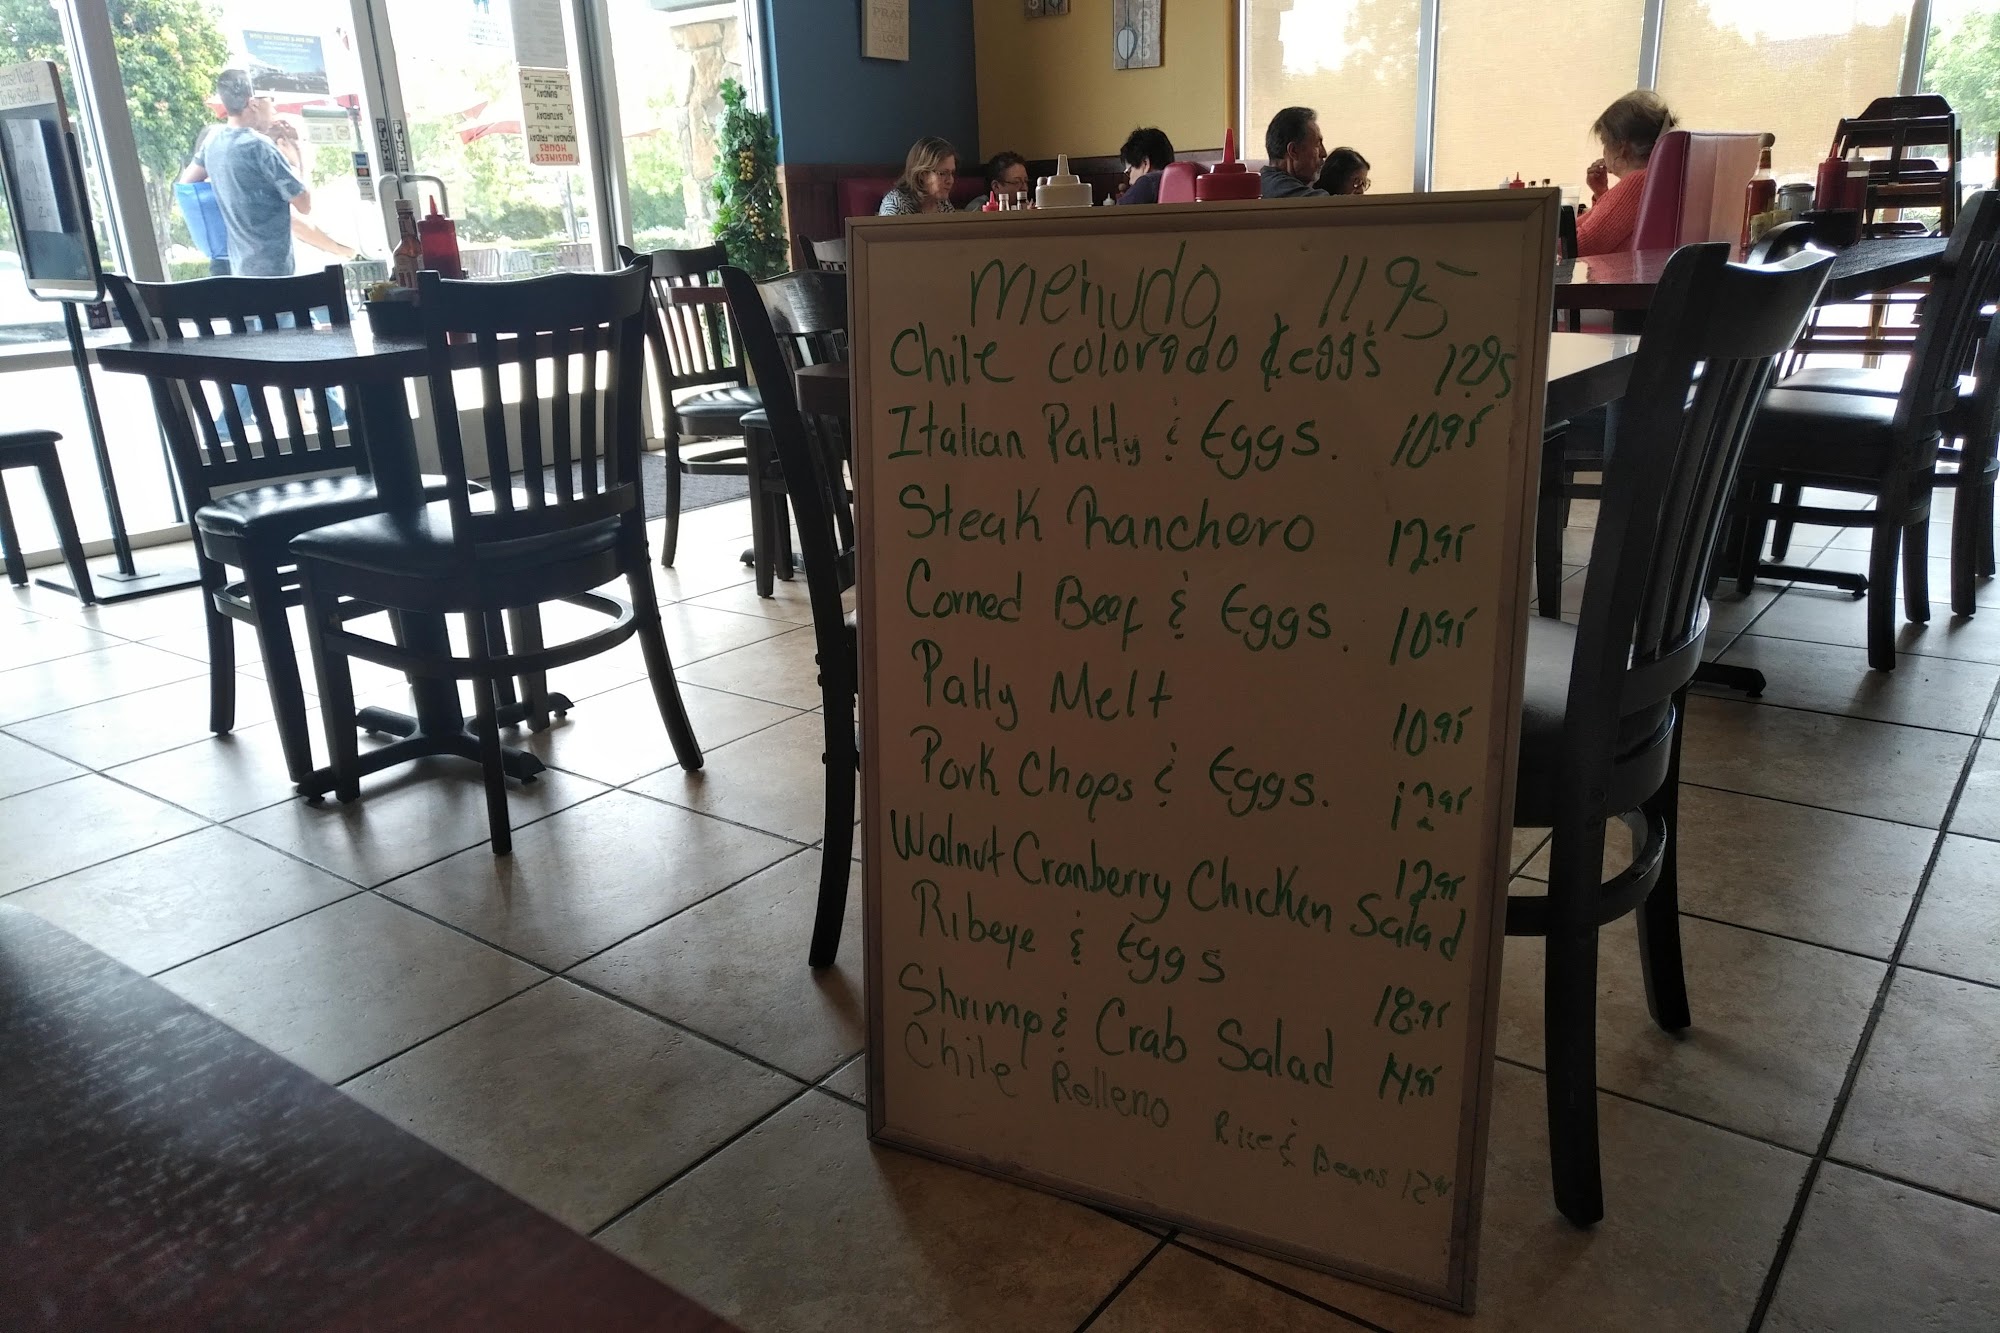 Please Wait
To Be Seated
PUSH
PUSH
BUSINESS
HOURS
MONDAY FRIDAY
SATURDAY
SUNDAY
PRAY
LOVE
Menudo 11.95
Chile Colorado & eggs 12.95
Italian Patty & Eggs. 10.95
Steak Ranchero 12.95
Corned Beef & Eggs. 10.95
Patty Melt 10.95
Pork Chops & Eggs. 12.95
Walnut Cranberry Chicken Salad 12.95
Ribeye & Eggs 18.95
Shrimp & Crab Salad 14.95
Chile Relleno Rice & Beans 12.95